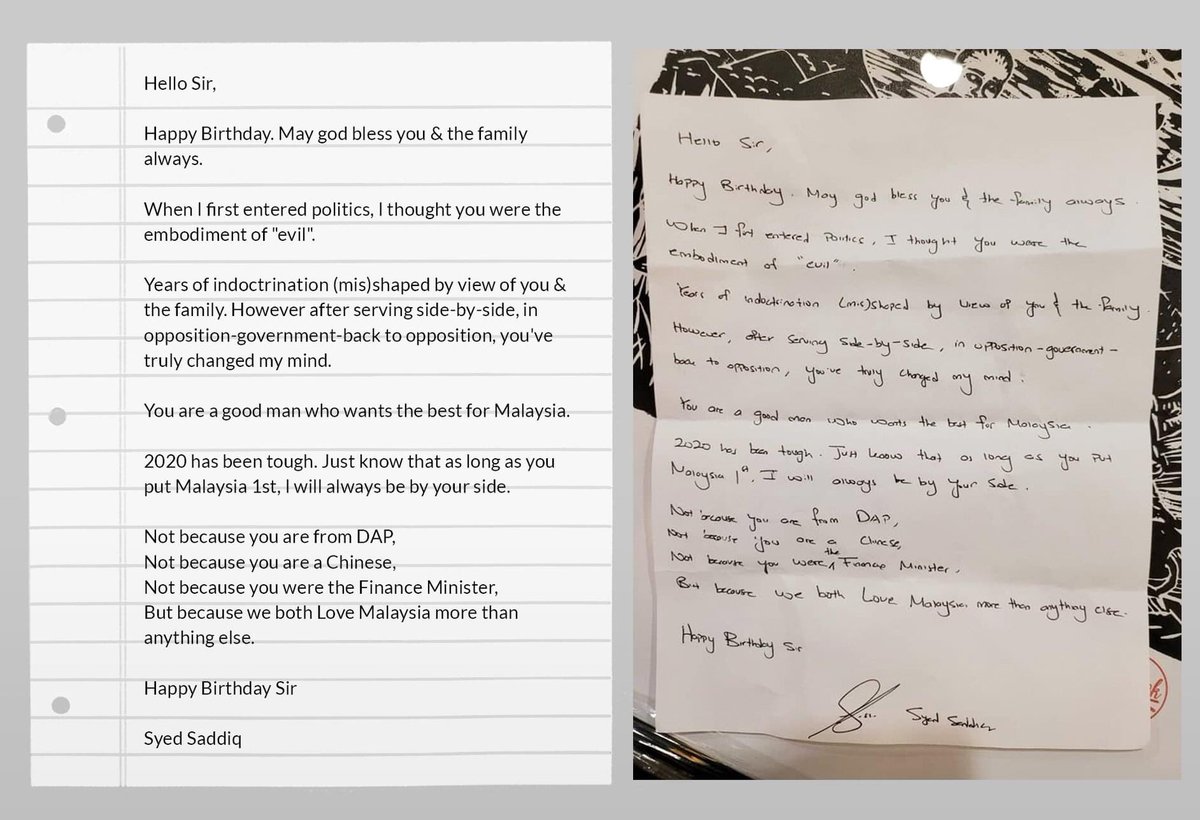 Hello Sir,
Happy Birthday. May god bless you & the family
always.
When I first entered politics, I thought you were the
embodiment of "evil".
Years of indoctrination (mis)shaped by view of you &
the family. However after serving side-by-side, in
opposition-government-back to opposition, you've
truly changed my mind.
You are a good man who wants the best for Malaysia.
2020 has been tough. Just know that as long as you
put Malaysia 1st, I will always be by your side.
Not because you are from DAP,
Not because you are a Chinese,
Not because you were the Finance Minister,
But because we both Love Malaysia more than
anything else.
Happy Birthday Sir
Syed Saddiq
Hello Sir,
Happy Birthday. May god bless you & the family always.
When I first entered Politics, I thought you were the
embodiment of "evil".
Years of indoctrination (mis)shaped by view of you & the family.
However, after serving side-by-side, in opposition-government-
back to opposition, you've truly changed my mind.
You are a good man who wants the best for Malaysia.
2020 has been tough. Just know that as long as you put
Malaysia 1st, I will always be by your side.
Not because you are from DAP,
Not because you are a Chinese,
Not because you were the Finance Minister,
But because we both Love Malaysia more than anything else.
Happy Birthday Sir
Syed Saddiq